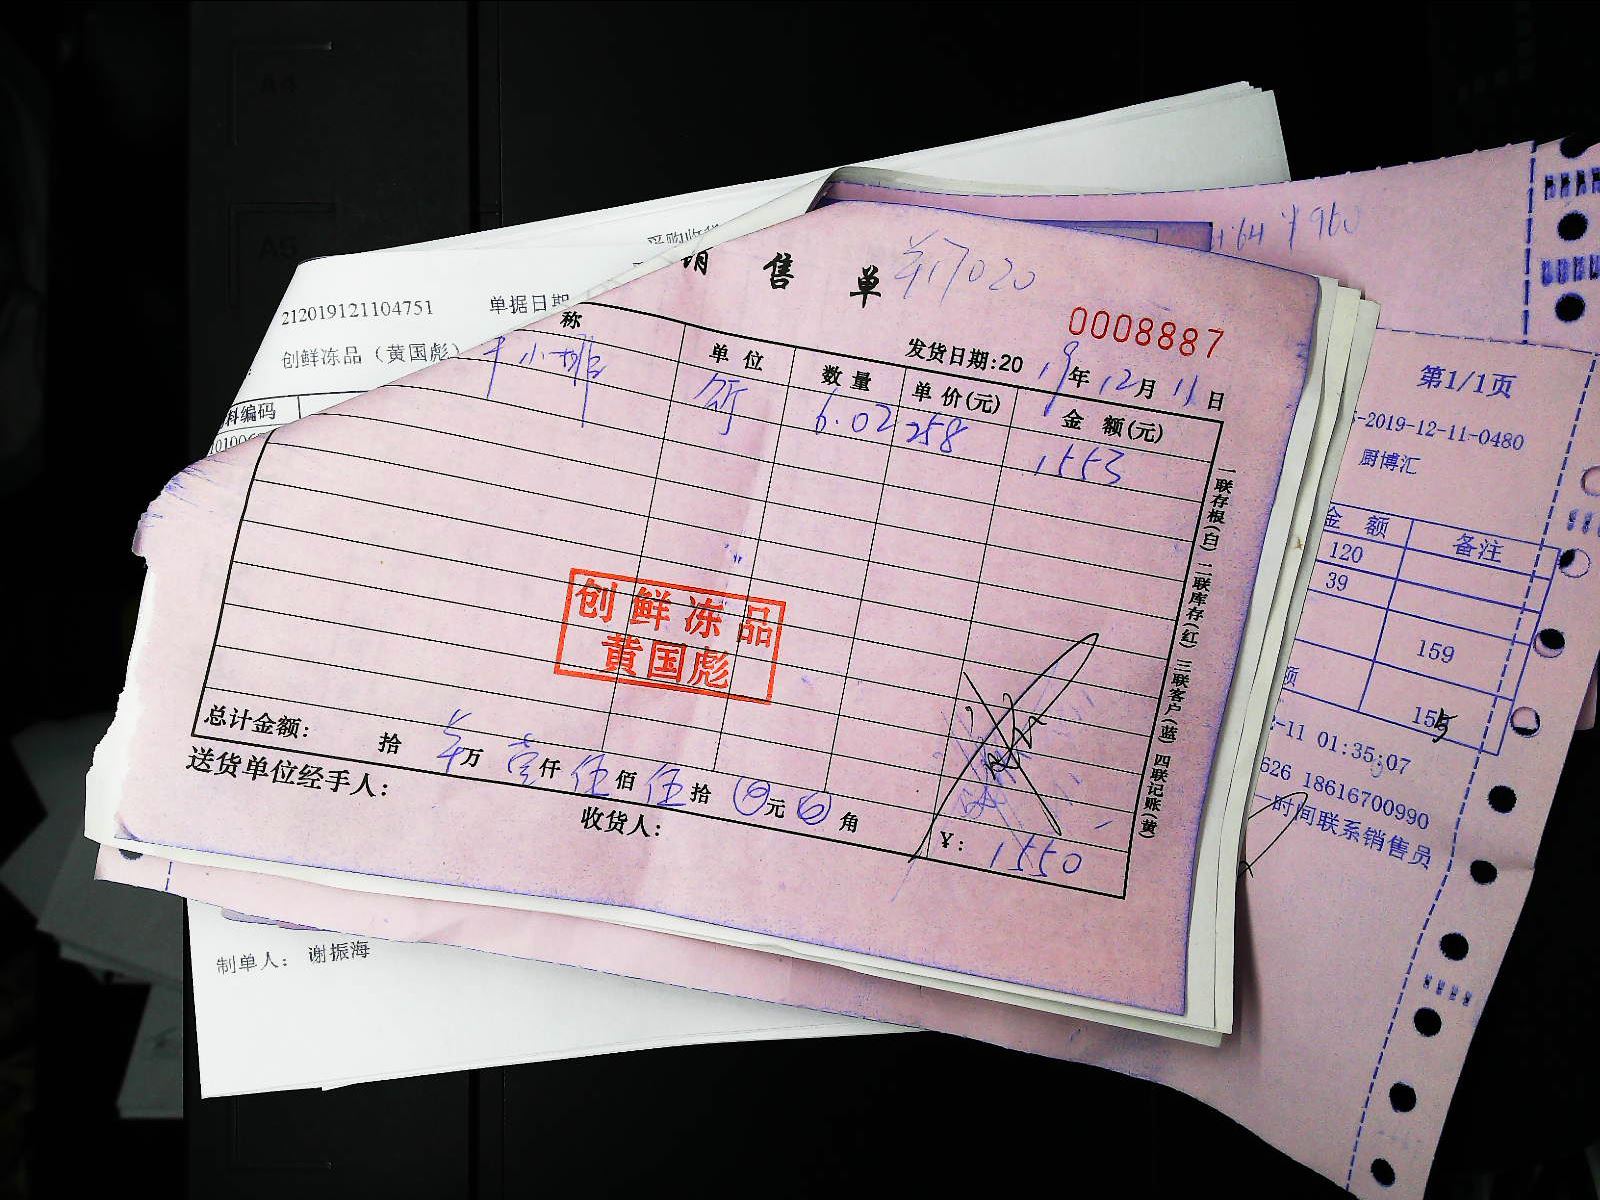 采购收货
212019121104751 单据日期
创鲜冻品（黄国彪）
料编码
销售单
0008887
发货日期:2019年12月11日
称 单位 数量 单价(元) 金额(元)
牛小排 斤 6.02 258 1553
创鲜冻品
黄国彪
总计金额: 拾 万 壹仟 伍佰 伍拾 元 角
¥: 1550
送货单位经手人:
收货人:
一联存根(白) 二联库存(红) 三联客户(蓝) 四联记账(黄)
制单人： 谢振海
1.64 ¥960
第1/1页
-2019-12-11-0480
厨博汇
金额 备注
120
39
159
额
155
-11 01:35:07
626 18616700990
一时间联系销售员
A5